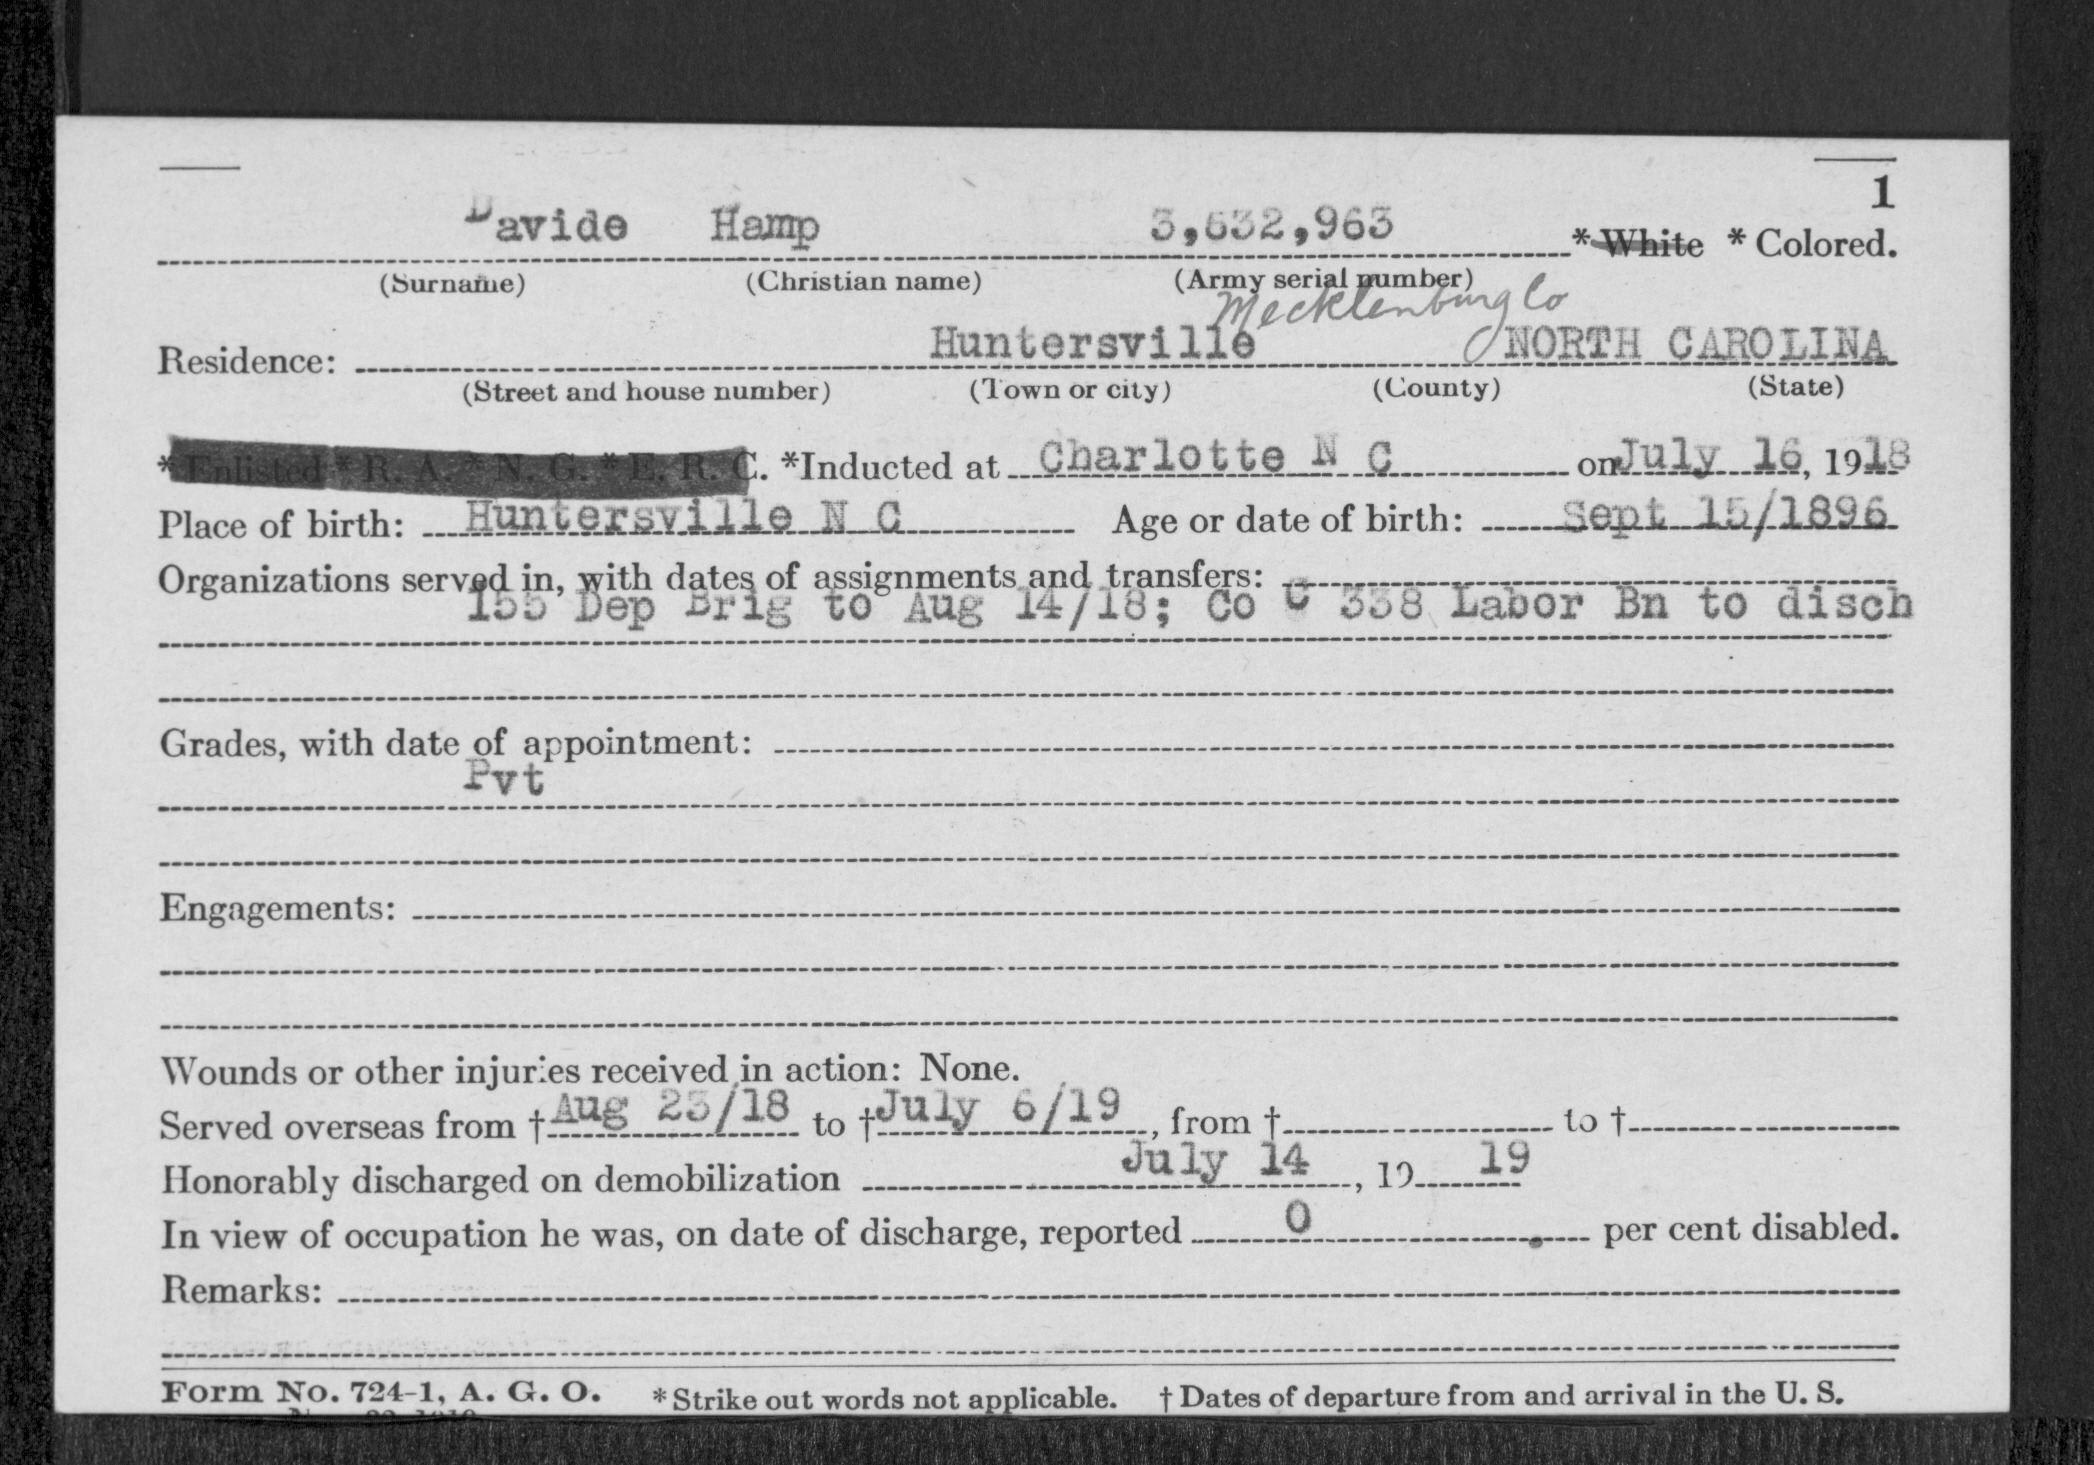 1
Davide Hamp 3,632,963 *White *Colored.
(Surname) (Christian name) (Army serial number)
Mecklenburg Co
Residence: Huntersville NORTH CAROLINA
(Street and house number) (Town or city) (County) (State)
*Enlisted *R. A. *N. G. *E. R. C. *Inducted at Charlotte N C on July 16, 1918
Place of birth: Huntersville N C Age or date of birth: Sept 15/1896
Organizations served in, with dates of assignments and transfers:
155 Dep Brig to Aug 14/18; Co C 338 Labor Bn to disch
Grades, with date of appointment:
Pvt
Engagements:
Wounds or other injuries received in action: None.
Served overseas from †Aug 23/18 to †July 6/19, from † to †
Honorably discharged on demobilization July 14, 19 19
In view of occupation he was, on date of discharge, reported 0 per cent disabled.
Remarks:
Form No. 724-1, A. G. O. *Strike out words not applicable. †Dates of departure from and arrival in the U. S.